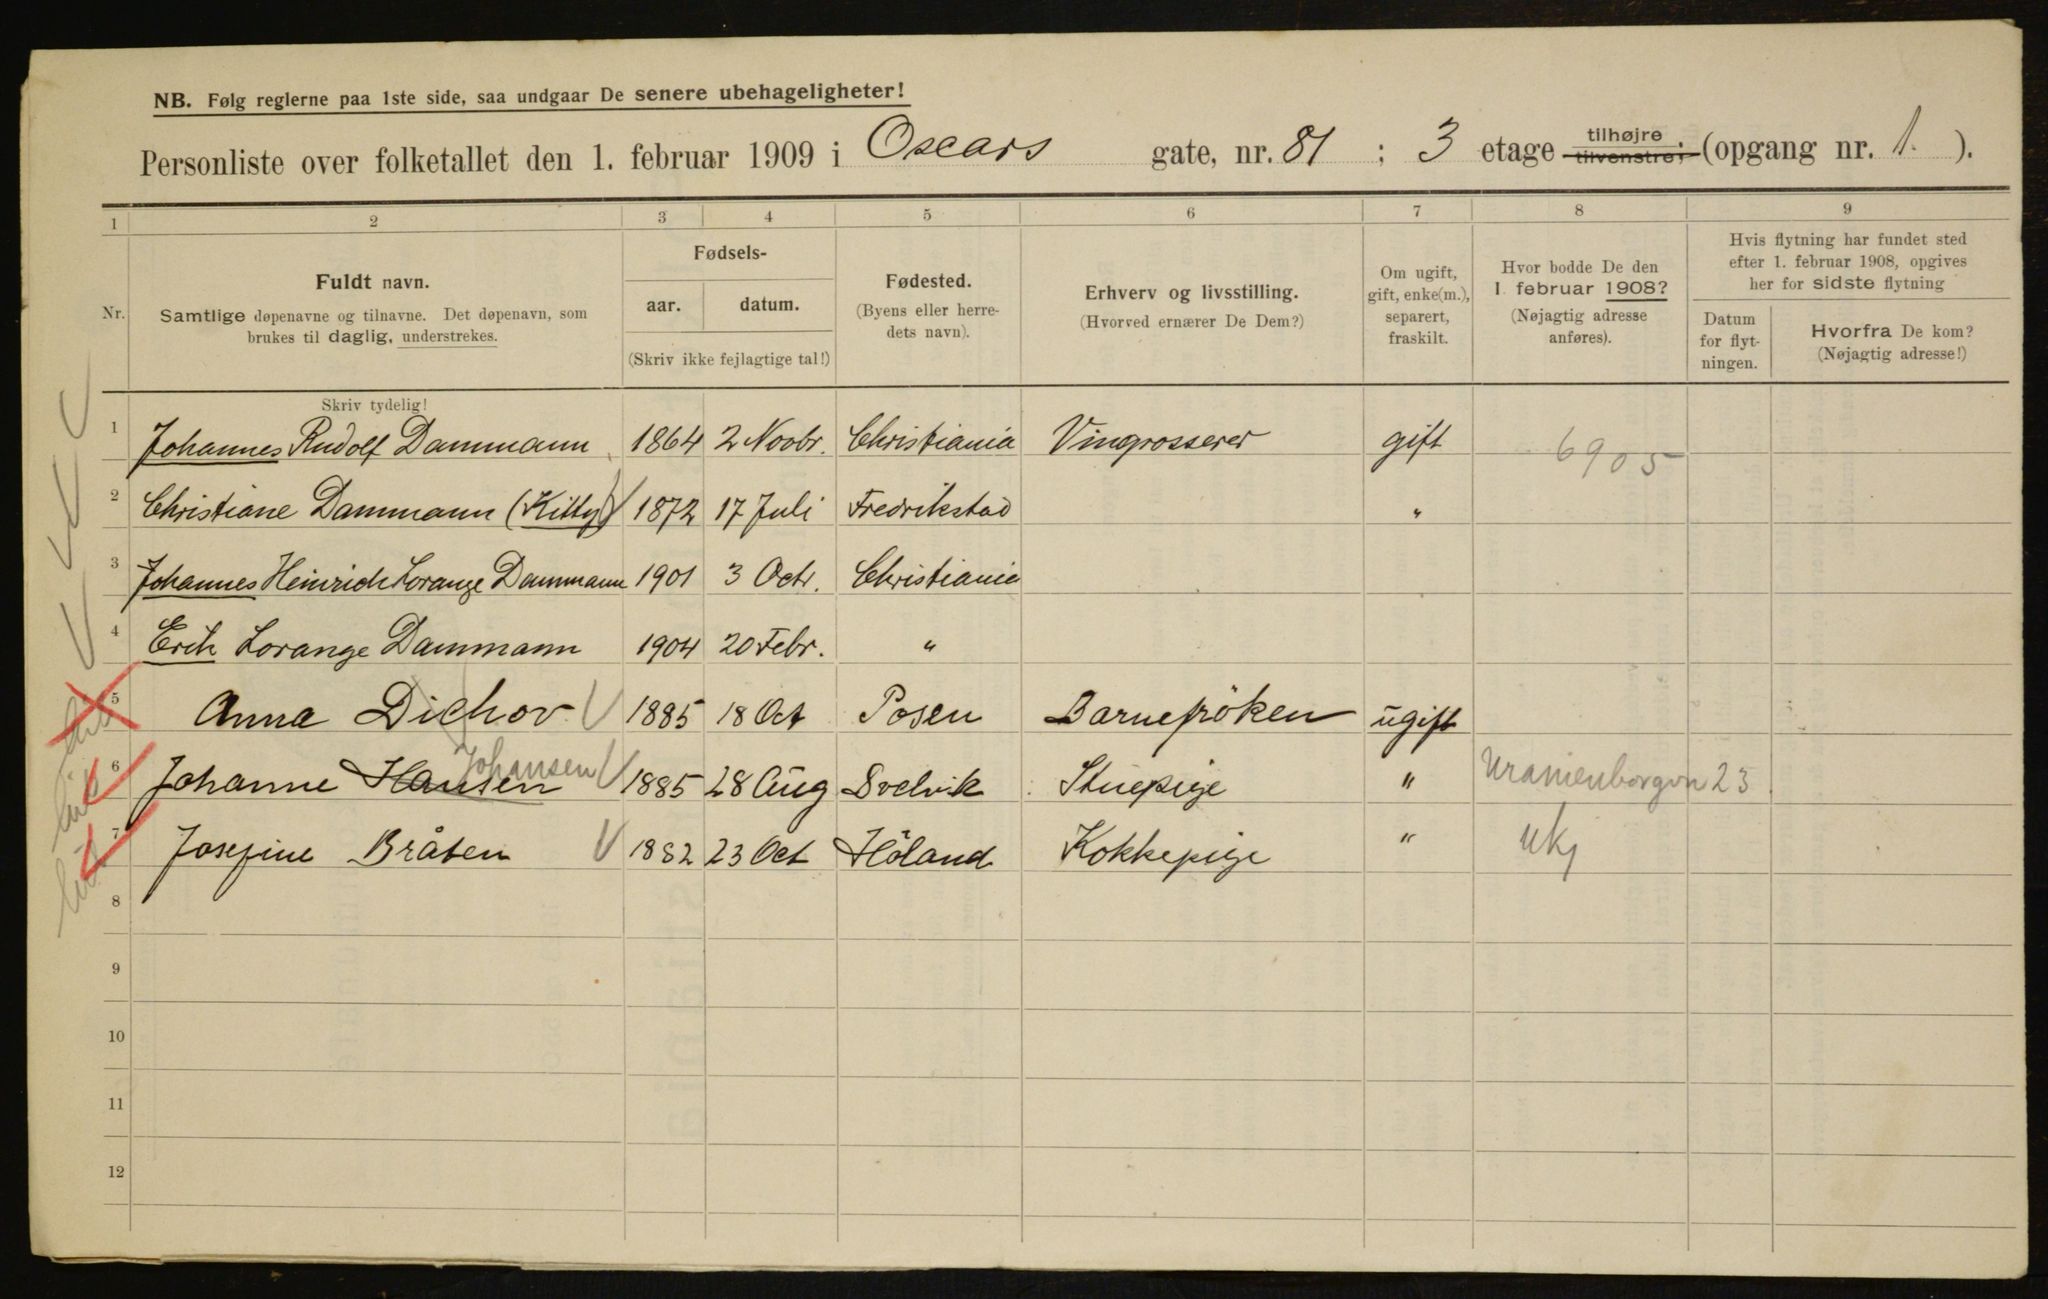 NB. Følg reglerne paa 1ste side, saa undgaar De senere ubehageligheter!
Personliste over folketallet den 1. februar 1909 i Oscars gate, nr. 81 ; 3 etage tilhøjre tilvenstre; (opgang nr. 1. ).
1 2 3 4 5 6 7 8 9
Nr.
Fuldt navn.
Samtlige døpenavne og tilnavne. Det døpenavn, som
brukes til daglig, understrekes.
Skriv tydelig!
Fødsels-
aar. datum.
(Skriv ikke fejlagtige tal!)
Fødested.
(Byens eller herre-
dets navn).
Erhverv og livsstilling.
(Hvorved ernærer De Dem?)
Om ugift,
gift, enke(m.),
separert,
fraskilt.
Hvor bodde De den
1. februar 1908?
(Nøjagtig adresse
anføres).
Hvis flytning har fundet sted
efter 1. februar 1908, opgives
her for sidste flytning
Datum
for flyt-
ningen.
Hvorfra De kom?
(Nøjagtig adresse!)
1 Johannes Rudolf Dammann 1864 2 Novbr. Christiania Vingrosserer gift 6905
2 Christiane Dammann (Kitty) 1872 17 Juli Fredrikstad "
3 Johannes Heinrich Lorange Dammann 1901 3 Octr. Christiania
4 Erik Lorange Dammann 1904 20 Febr. "
5 Anna Dichov 1885 18 Oct Posen Barnefröken ugift
6 Johanne Hansen Johansen 1885 28 Aug Svelvik Stuepige " Uranienborgvn 23
7 Josefine Bråten 1882 23 Oct Höland Kokkepige " ukj
8
9
10
11
12